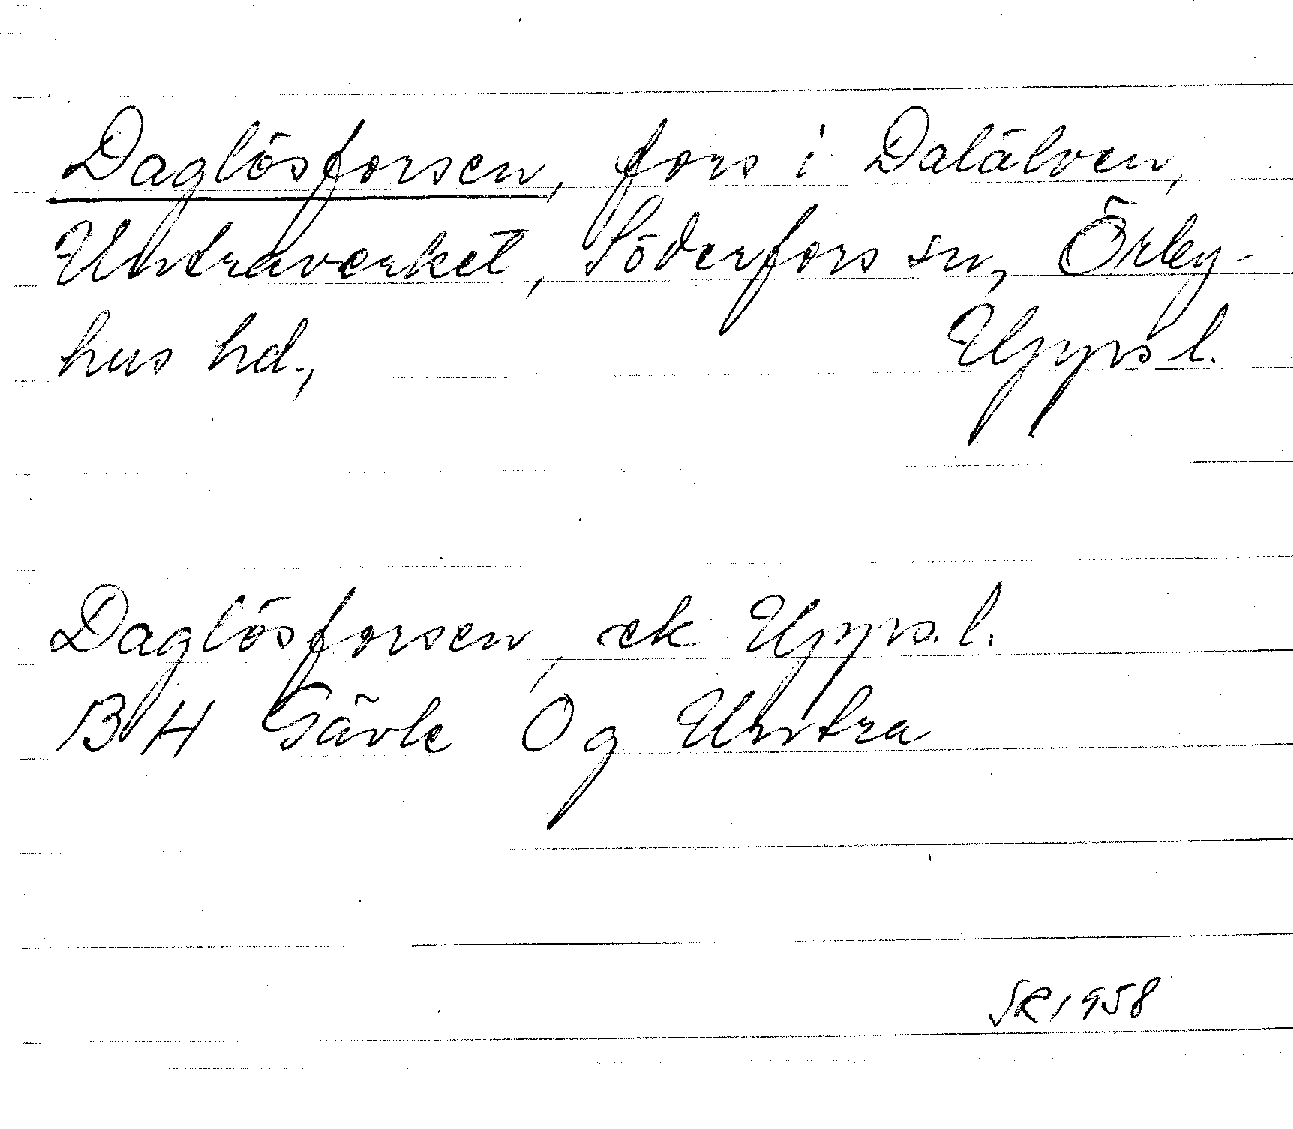 Daglösforsen, fors i Dalälven,
Untraverket, Söderfors sn, Örby-
hus hd., Upps. l.
Daglösforsen, ek Upps. l.
B H Gävle Og Untra
SR 1958